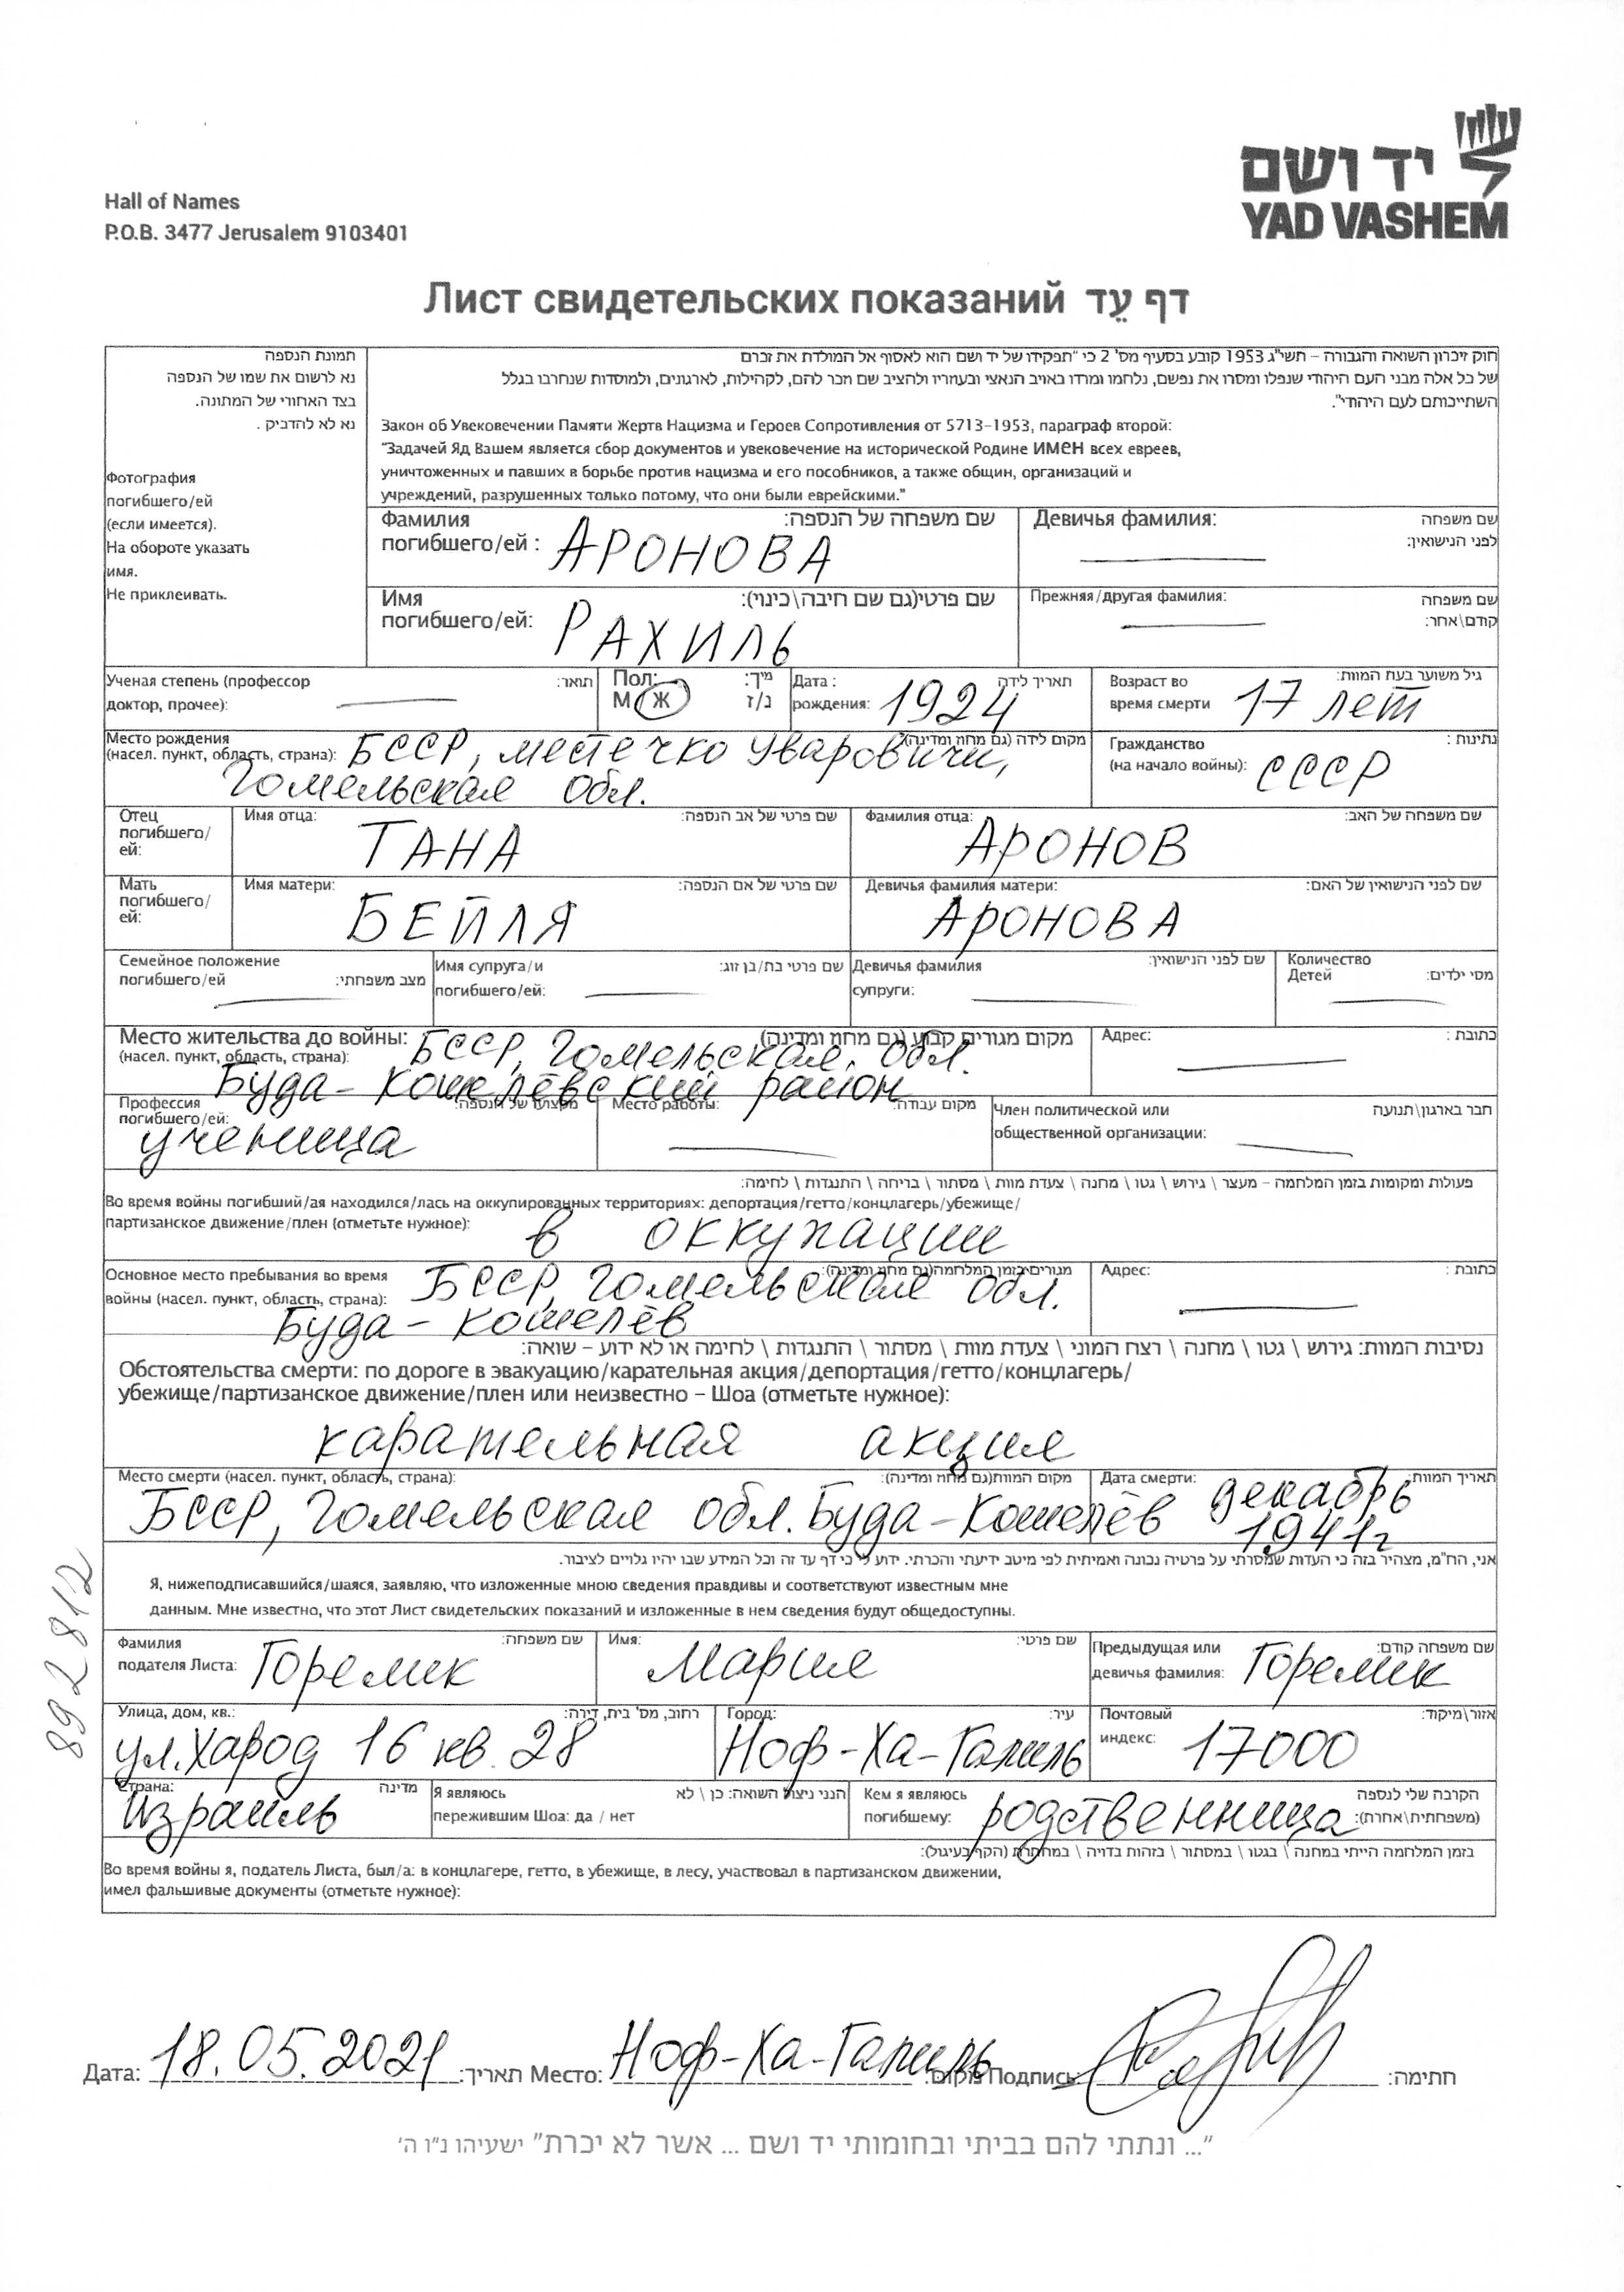 יד ושם
YAD VASHEM
Hall of Names
P.O.B. 3477 Jerusalem 9103401
Лист свидетельских показаний דף עֵד
תמונת הנספה
נא לרשום את שמו של הנספה
בצד האחורי של המתונה.
נא לא להדביק .
Фотография
погибшего/ей
(если имеется).
На обороте указать
имя.
Не приклеивать.
חוק זיכרון השואה והגבורה – תשי"ג 1953 קובע בסעיף מס' 2 כי "תפקידו של יד ושם הוא לאסוף אל המולדת את זכרם
של כל אלה מבני העם היהודי שנפלו ומסרו את נפשם, נלחמו ומרדו באויב הנאצי ובעוזריו ולהציב שם מכר להם, לקהילות, לארגונים, ולמוסדות שנחרבו בגלל
השתייכותם לעם היהודי".
Закон об Увековечении Памяти Жертв Нацизма и Героев Сопротивления от 5713-1953, параграф второй:
"Задачей Яд Вашем является сбор документов и увековечение на исторической Родине имен всех евреев,
уничтоженных и павших в борьбе против нацизма и его пособников, а также общин, организаций и
учреждений, разрушенных только потому, что они были еврейскими."
Фамилия погибшего/ей : АРОНОВА שם משפחה של הנספה:
Девичья фамилия: שם משפחה לפני הנישואין:
Имя погибшего/ей: РАХИЛЬ שם פרטי(גם שם חיבה\כינוי):
Прежняя/другая фамилия: שם משפחה קודם\אחר:
Ученая степень (профессор доктор, прочее): תואר:
Пол: М Ж מין: נ/ז
Дата : рождения: 1924 תאריך לידה
Возраст во время смерти 17 лет גיל משוער בעת המוות:
Место рождения (насел. пункт, область, страна): מקום לידה (גם מחוז ומדינה):
БССР, местечко Уваровичи,
Гомельская обл.
Гражданство (на начало войны): СССР נתינות :
Отец погибшего/ей: Имя отца: ТАНА שם פרטי של אב הנספה:
Фамилия отца: АРОНОВ שם משפחה של האב:
Мать погибшего/ей: Имя матери: БЕЙЛЯ שם פרטי של אם הנספה:
Девичья фамилия матери: АРОНОВА שם לפני הנישואין של האם:
Семейное положение погибшего/ей מצב משפחתי:
Имя супруга/и погибшего/ей: שם פרטי בת/בן זוג:
Девичья фамилия супруги: שם לפני הנישואין:
Количество Детей מסי ילדים:
Место жительства до войны: (насел. пункт, область, страна): מקום מגורים קבוע (גם מחוז ומדינה)
БССР, Гомельская обл.
Буда-Кошелёвский район
Адрес: כתובת :
Профессия погибшего/ей: ученица מקצועו של הנספה:
Место работы: מקום עבודה:
Член политической или общественной организации: חבר בארגון\תנועה
פעולות ומקומות בזמן המלחמה – מעצר \ גירוש \ גטו \ מחנה \ צעדת מוות \ מסתור \ בריחה \ התנגדות \ לחימה:
Во время войны погибший/ая находился/лась на оккупированных территориях: депортация/гетто/концлагерь/убежище/
партизанское движение/плен (отметьте нужное):
в оккупации
Основное место пребывания во время войны (насел. пункт, область, страна): מגורים בזמן המלחמה(גם מחוז ומדינה):
БССР, Гомельская обл.
Буда-Кошелёв
Адрес: כתובת :
נסיבות המוות: גירוש \ גטו \ מחנה \ רצח המוני \ צעדת מוות \ מסתור \ התנגדות \ לחימה או לא ידוע – שואה:
Обстоятельства смерти: по дороге в эвакуацию/карательная акция/депортация/гетто/концлагерь/
убежище/партизанское движение/плен или неизвестно – Шоа (отметьте нужное):
карательная акция
Место смерти (насел. пункт, область, страна): מקום המוות(גם מחוז ומדינה):
БССР, Гомельская обл. Буда-Кошелёв
Дата смерти: תאריך המוות:
декабрь
1941г
אני, הח"מ, מצהיר בזה כי העדות שמסרתי על פרטיה נכונה ואמיתית לפי מיטב ידיעתי והכרתי. ידוע לי כי דף עד זה וכל המידע שבו יהיו גלויים לציבור.
Я, нижеподписавшийся/шаяся, заявляю, что изложенные мною сведения правдивы и соответствуют известным мне
данным. Мне известно, что этот Лист свидетельских показаний и изложенные в нем сведения будут общедоступны.
8922812
Фамилия подателя Листа: Горемик שם משפחה:
Имя: Мария שם פרטי:
Предыдущая или девичья фамилия: Горемик שם משפחה קודם:
Улица, дом, кв.: ул. Харод 16 кв. 28 רחוב, מס' בית, דירה:
Город: Ноф-Ха-Галиль עיר:
Почтовый индекс: 17000 אזור\מיקוד:
Страна: Израиль מדינה
Я являюсь пережившим Шоа: да / нет הנני ניצול השואה: כן \ לא
Кем я являюсь погибшему: родственница הקרבה שלי לנספה (משפחתית\אחרת):
בזמן המלחמה הייתי במחנה \ בגטו \ במסתור \ בזהות בדויה \ במחתרת (הקף בעיגול):
Во время войны я, податель Листа, был/а: в концлагере, гетто, в убежище, в лесу, участвовал в партизанском движении,
имел фальшивые документы (отметьте нужное):
Дата: 18.05.2021 תאריך: Место: Ноф-Ха-Галиль מקום: Подпись: חתימה:
"... ונתתי להם בביתי ובחומותי יד ושם ... אשר לא יכרת" ישעיהו נ"ו ה'